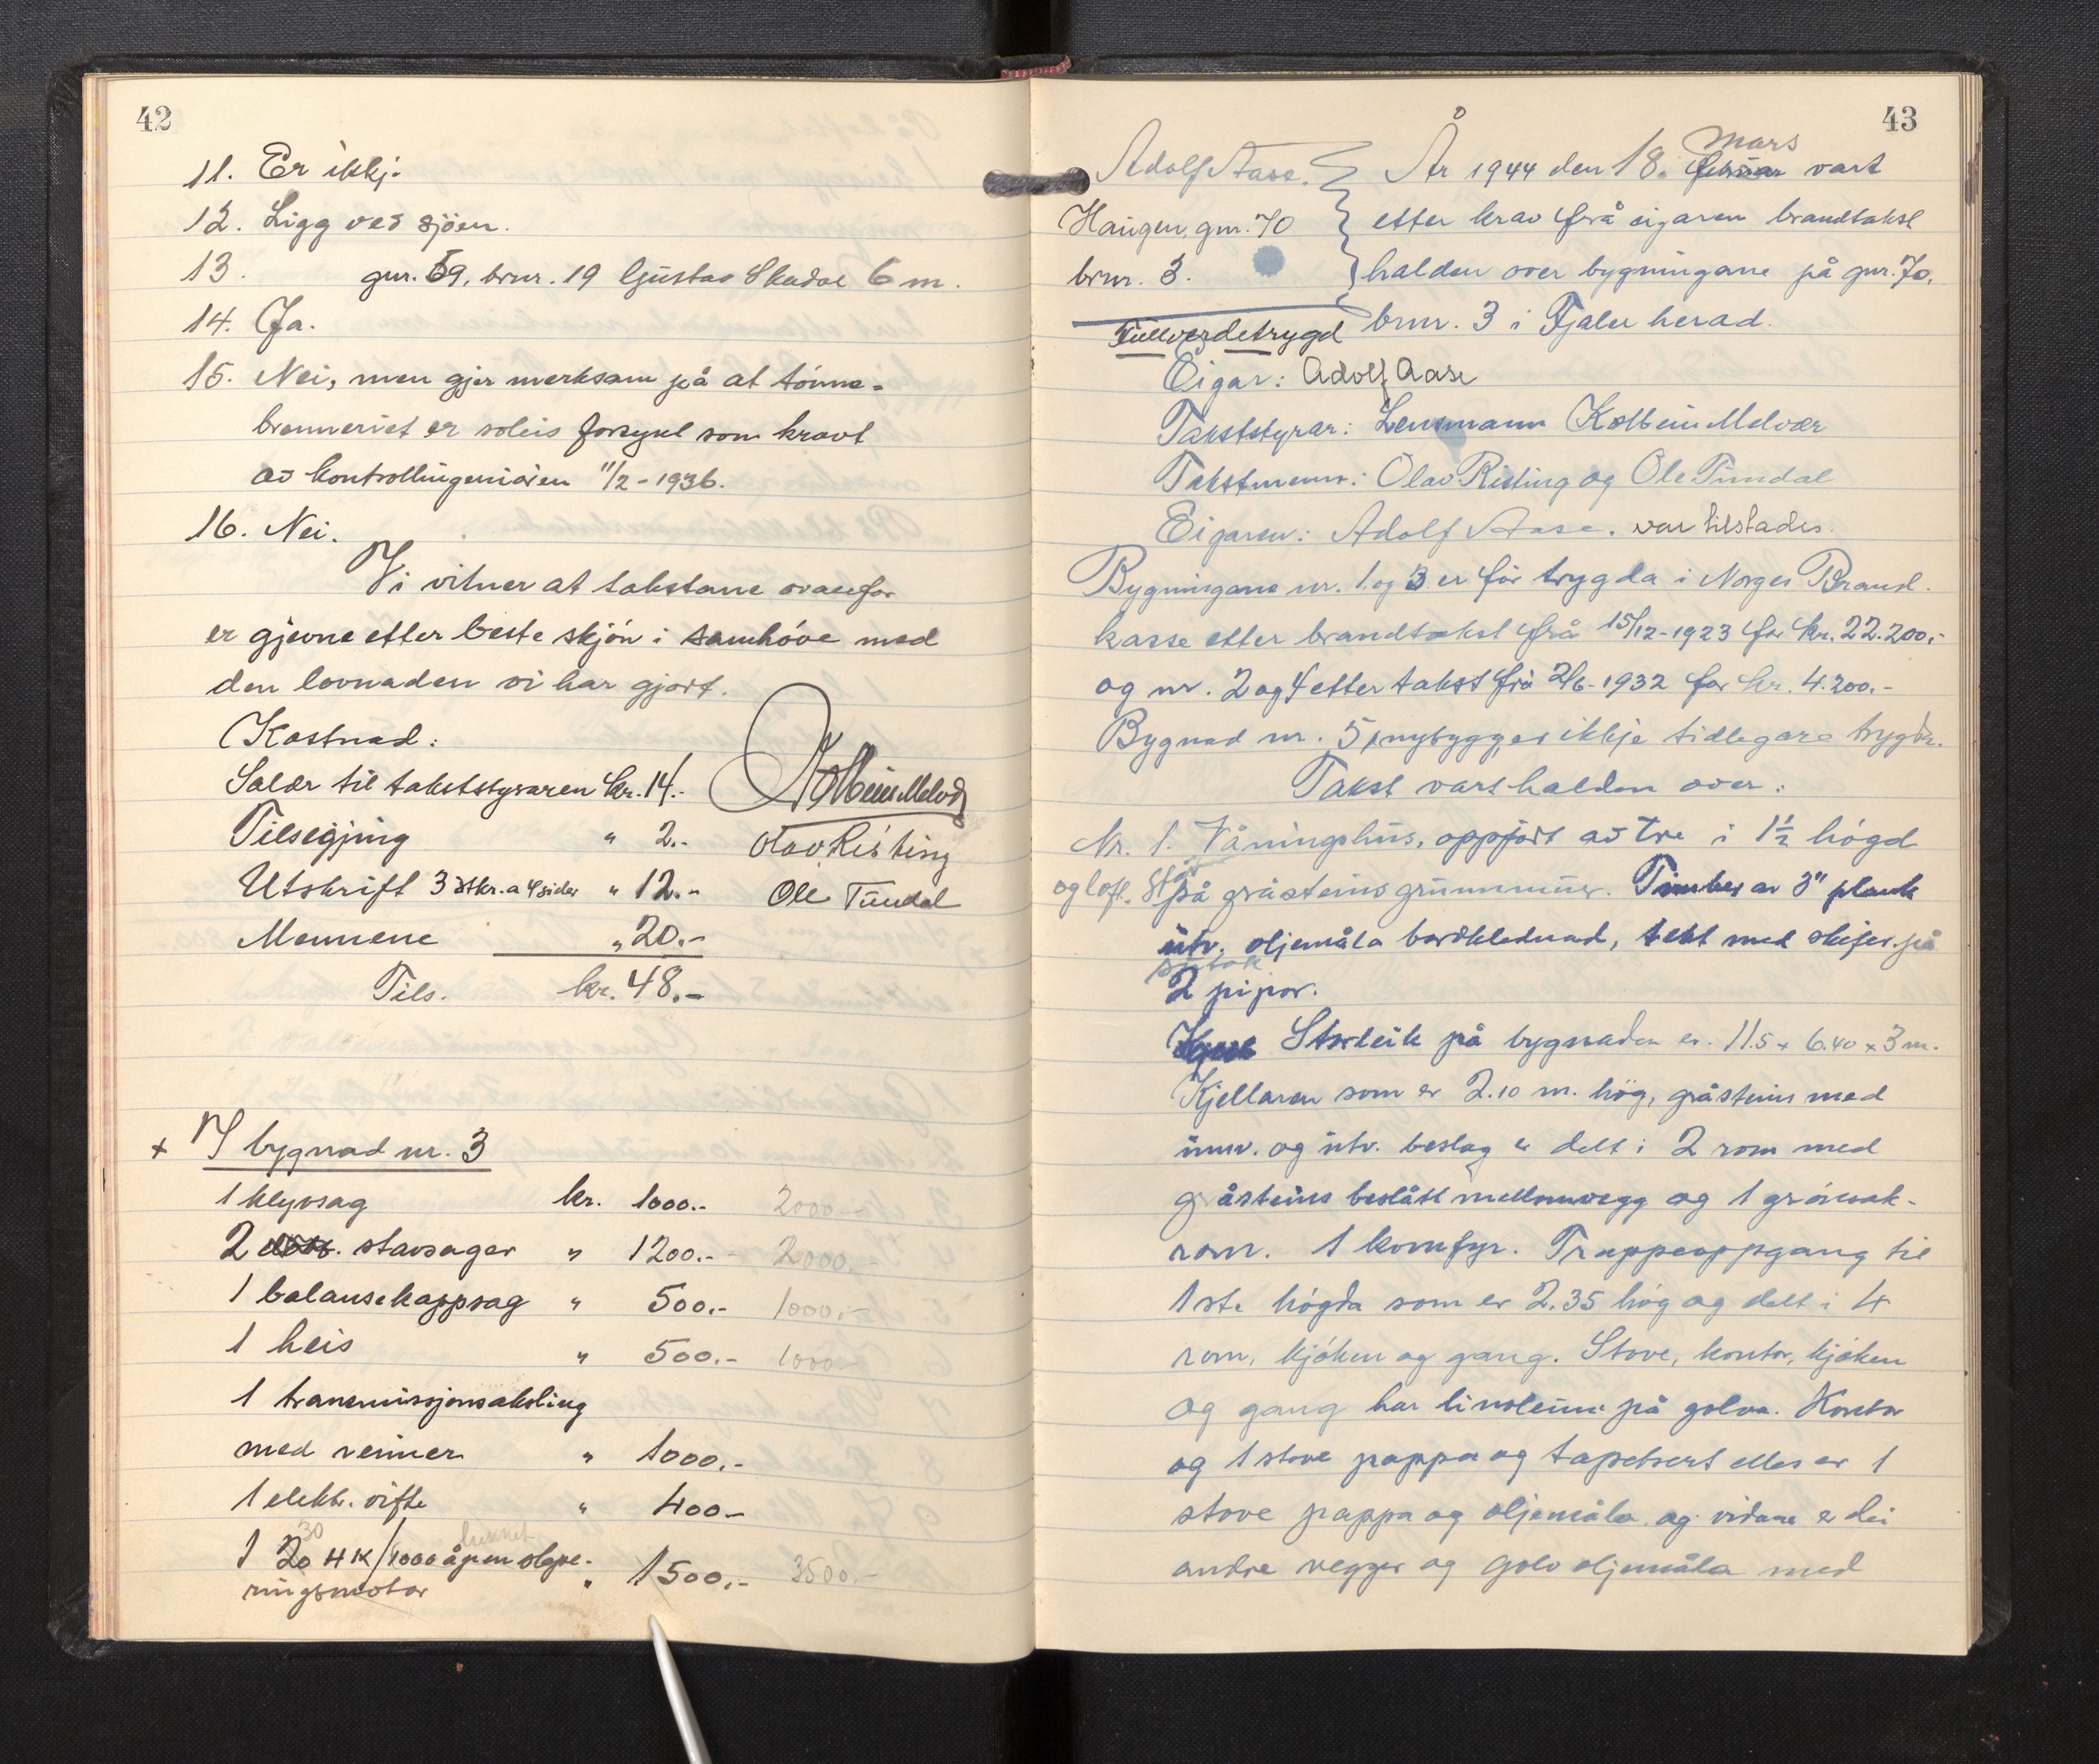 42
11. Er ikkj.
12. Ligg ved sjöen.
13. gnr. 59, brnr. 19 Gustav Skadal 6 m.
14. Ja.
15. Nei, men gjer merksam på at tónne-
brenneriet er soleis forsynt som kravt
av kontrollingeniören 11/2-1936.
16. Nei.
Vi vitner at takstane ovanfor
er gjevne etter beste skjón i samhóve med
den lovnaden vi har gjort.
Kostnad:
Salær til takststyraren kr. 14.-
Tilsegjing " 2.-
Utskrift 3 stkr. a 4 sider " 12.-
Mennene " 20.-
Tils. kr. 48.-
Kolbein Melvær
Olav Risting
Ole Tundal
+ I bygnad nr. 3
1 klyvsag kr. 1000.- 2000.-
2 stavsager " 1200.- 2000.-
1 balansekappsag " 500.- 1000.-
1 heis " 500.- 1000.-
1 transmissjonsaksling
med reimer " 1000.-
1 elektr. vifte " 400.-
30 lukket
1 20 HK/1000 åpen slepe-
ringsmotor " 1500.- 3500.-
43
Adolf Aase.
Haugen, gnr. 70
brnr. 3.
Fullverdetrygd
mars
År 1944 den 18. februar vart
etter krav frå eigaren brandtakst
halden over bygningane på gnr. 70,
brnr. 3 i Fjaler herad.
Eigar: Adolf Aase
Takststyrar: Lensmann Kolbein Melvær
Takstmenn: Olav Risting og Ole Tundal
Eigaren: Adolf Aase. var tilstades.
Bygningane nr. 1. og 3 er för trygda i Norges Brand-
kasse etter brandtakst frå 15/12-1923 for kr. 22.200.-
og nr. 2 og 4 etter takst frå 2/6-1932 for kr. 4.200.-
Bygnad nr. 5, nybygg er ikkje tidlegare trygda.
Takst vart halden over:
Nr. 1. Våningshus, oppfört av tre i 1½ högd
og loft. Står på gråsteins grunnmur. Timber av 3" plank
utv. oljemåla bordklednad, tekt med skifer på
sutak
2 pipor.
Storleik på bygnaden er. 11.5 x 6.40 x 3 m.
Kjellaren som er 2.10 m. hög, gråsteins med
innv. og utv. beslag er delt i 2 rom med
gråsteins beslått mellomvegg og 1 grónsak-
rom. 1 komfyr. Trappeoppgang til
1ste högda som er 2.35 hög og delt i 4
rom, kjöken og gang. Stove, kontor, kjöken
og gang har linoleum på golva. Kontor
og 1 stove pappa og tapetsert elles er 1
stove pappa og oljemåla og vidare er dei
andre vegger og golv oljemåla med